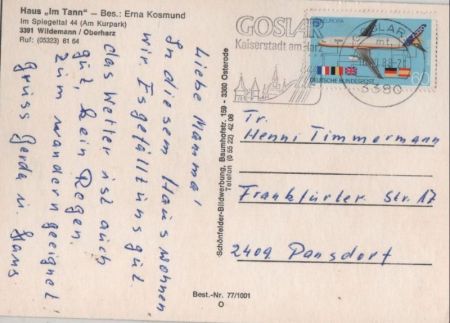 Haus „Im Tann" – Bes.: Erna Kosmund
Im Spiegeltal 44 (Am Kurpark)
3391 Wildemann / Oberharz
Ruf: (05323) 61 64
Liebe Mamma!
In diesem Haus wohnen
wir. Es gefällt uns gut
das Wetter ist auch
gut, kein Regen.
Zum wandern geeignet!
Gruss Gerda u. Hans
Schönfelder-Bildwerbung, Baumhofstr. 159 - 3360 Osterode
Telefon (0 55 22) 42 08
Best.-Nr. 77/1001
GOSLAR
Kaiserstadt am Harz
GOSLAR
3380
EUROPA
60
DEUTSCHE BUNDESPOST
Fr.
Henni Timmermann
Frankfurter Str. 17
2409 Pansdorf